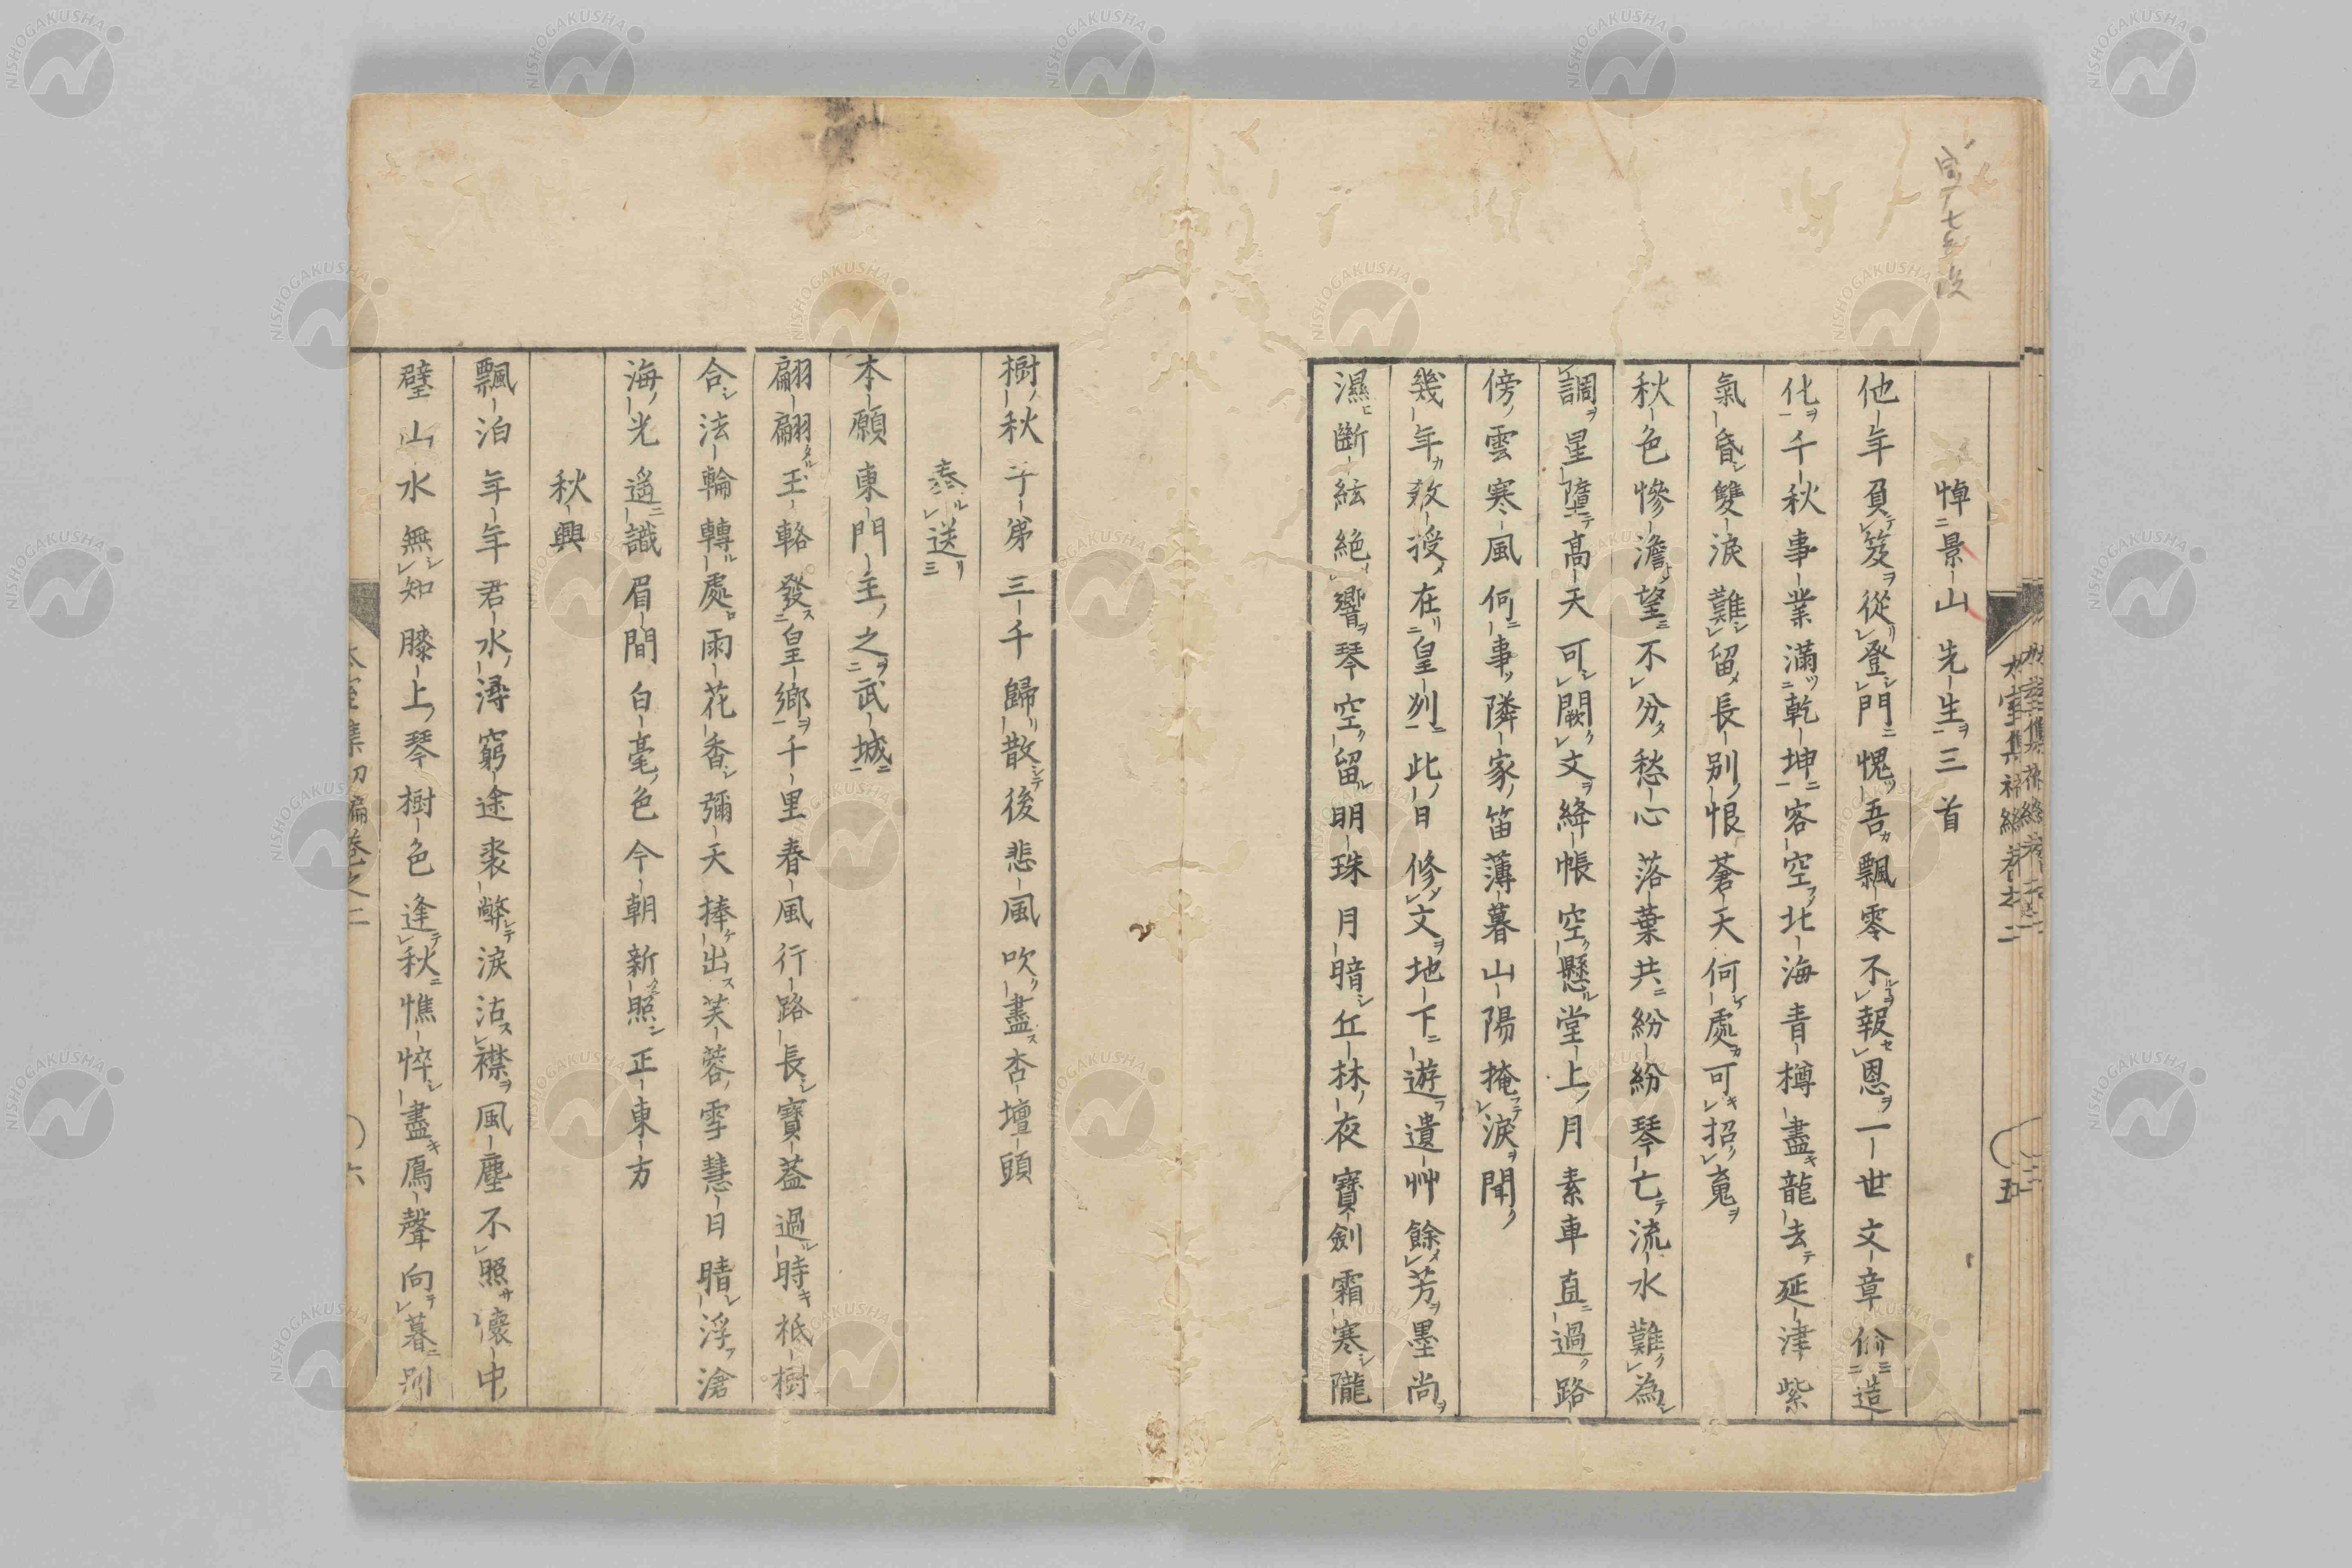 悼景山先生三首
他年負笈從登門愧吾飄零不報恩一世文章俗造
化千秋事業滿乾坤客空北海青樽盡龍去延津紫
氣昏雙淚難留長別恨蒼天何處可招嵬
秋色慘澹望不分愁心落葉共紛紛琴亡流水難為
調星隕高天可闕文絳帳空懸堂上月素車直過路
傍雲寒風何事隣家笛薄暮山陽掩淚聞
幾年教授在皇州此日修文地下遊遺艸餘芳墨尚
濕斷絃絕響琴空留明珠月暗丘林夜寶劍霜寒隴
太室集初編卷之二
五
樹秋子弟三千歸散後悲風吹盡杏壇頭
奉送
本願東門主之武城
翩翩玉輅發皇鄉千里春風行路長寶蓋過時祇樹
合法輪轉處雨花香彌天捧出芙蓉雪慧日晴浮滄
海光遙識眉間白毫色今朝新照正東方
秋興
飄泊年年君水潯窮途裘弊淚沾襟風塵不照懷中
璧山水無知膝上琴樹色逢秋憔悴盡鴈聲向暮別
太室集初編卷之二
六
NISHOGAKUSHA